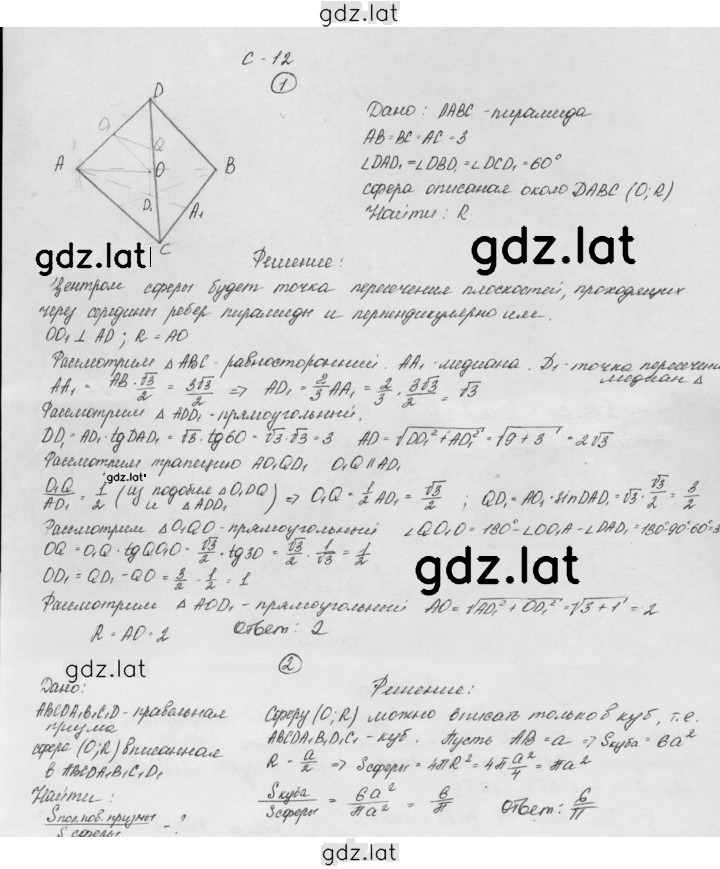 gdz.lat
С-12
1
D
O₁
Q
A
O
B
D₁
A₁
C
Дано: DABC - пирамида
AB=BC=AC=3
∠DAD₁=∠DBD₁=∠DCD₁=60°
сфера описаная около DABC (O;R)
Найти: R
gdz.lat
gdz.lat
Решение:
Центром сферы будет точка пересечения плоскостей, проходящих
через середины ребер пирамиды и перпендикулярно им.
OO₁ ⊥ AD ; R = AO
Рассмотрим △ABC - равносторонний. AA₁ - медиана. D₁ - точка пересечен
медиан △
AA₁ = AB·√3/2 = 3√3/2 => AD₁ = 2/3 AA₁ = 2/3 · 3√3/2 = √3
Рассмотрим △ADD₁ - прямоугольный.
DD₁ = AD₁ · tgDAD₁ = √3 · tg60 = √3 · √3 = 3 AD = √(DD₁² + AD₁²) = √(9+3) = 2√3
Рассмотрим трапецию AO₁QD₁ O₁Q ∥ AD₁
gdz.lat
O₁Q/AD₁ = 1/2 (из подобия △O₁DQ и △ADD₁) => O₁Q = 1/2 AD₁ = √3/2 ; QD₁ = AO₁ · sinDAD₁ = √3 · √3/2 = 3/2
Рассмотрим △O₁QO - прямоугольный ∠QO₁O = 180° - ∠OO₁A - ∠DAD₁ = 180°-90°-60°=3
OQ = O₁Q · tgQO₁O = √3/2 · tg30 = √3/2 · 1/√3 = 1/2
OD₁ = QD₁ - QO = 3/2 - 1/2 = 1
gdz.lat
Рассмотрим △AOD₁ - прямоугольный AO = √(AD₁² + OD₁²) = √(3+1) = 2
R = AO = 2 Ответ: 2
2
gdz.lat
Дано:
ABCDA₁B₁C₁D - правельная
призма
сфера (O;R) вписанная
в ABCDA₁B₁C₁D₁
Найти:
Sпол.пов.призмы/Sсферы - ?
Решение:
Сферу (O;R) можно вписать только в куб, т.е.
ABCDA₁B₁D₁C₁ - куб. Пусть AB = a => Sкуба = 6a²
R = a/2 => Sсферы = 4πR² = 4π a²/4 = πa²
Sкуба/Sсферы = 6a²/πa² = 6/π Ответ: 6/π
gdz.lat